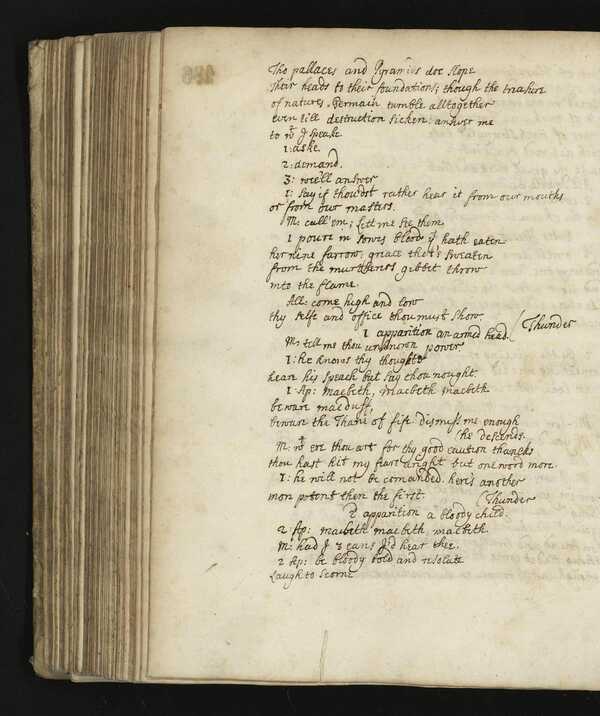 Tho pallaces and Pyramids doe slope
Their heads to their foundations; though the treasure
of natures. Germain tumble alltogether
even till destruction sicken: answer me
to wt I speake
1: aske.
2: demand.
3: wee'll answer
1: Say if thoudst rather hear it from our mouths
or from our masters.
M: call 'em; let me see them
1 poure in sowes blood yt hath eaten
her nine farrow; greace that's sweaten
from the murtherers gibbet throw
into the flame.
All: come high and low
thy selfe and office thou must show. (Thunder
1 apparition an armed head.
M: tell me thou unknown power
1: he knows thy thought
heare his speach but say thou nought.
1 Ap: Macbeth, Macbeth Macbeth
beware macduff,
beware the Thane of fife dismiss me enough
(he descends.
M: wt ere thou art for thy good caution thancks
thou hast hit my feare aright but one word more
1: he will not be comanded. here's another
more potent then the first. (Thunder
2 apparition a bloody child.
2 Ap: macbeth macbeth, macbeth
M: had I 3 ears I'd hear thee.
2 Ap: be bloody bold and resolute
Laugh to scorne